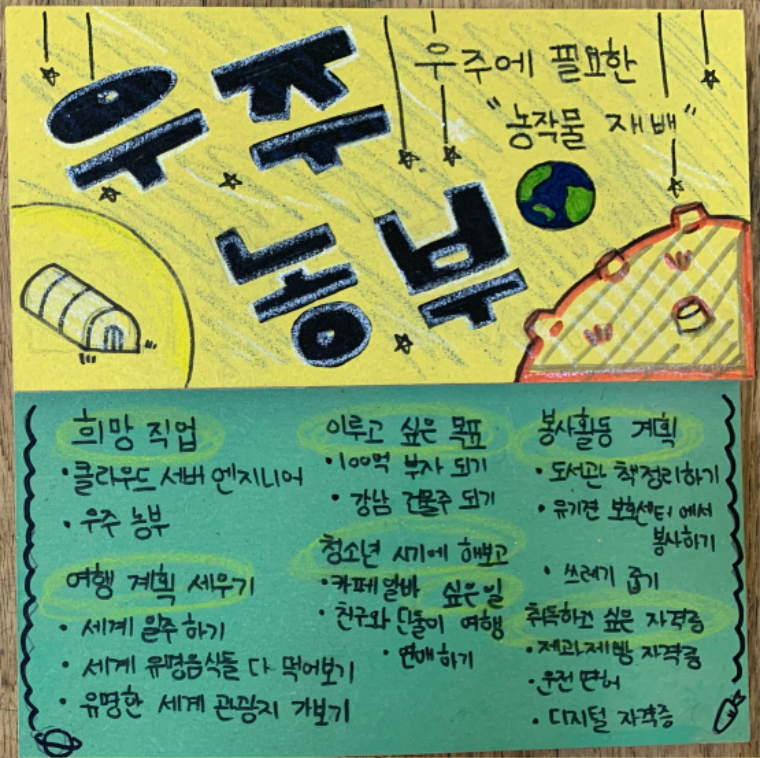 우주
농부
우주에 필요한
"농작물 재배"
희망 직업
• 클라우드 서버 엔지니어
• 우주 농부
여행 계획 세우기
• 세계 일주 하기
• 세계 유명음식들 다 먹어보기
• 유명한 세계 관광지 가보기
이루고 싶은 목표
• 100억 부자 되기
• 강남 건물주 되기
청소년 시기에 해보고
싶은 일
• 카페 알바
• 친구와 단둘이 여행
• 연애하기
봉사활동 계획
• 도서관 책정리하기
• 유기견 보호센터에서
봉사하기
• 쓰레기 줍기
취득하고 싶은 자격증
• 제과제빵 자격증
• 운전 면허
• 디지털 자격증